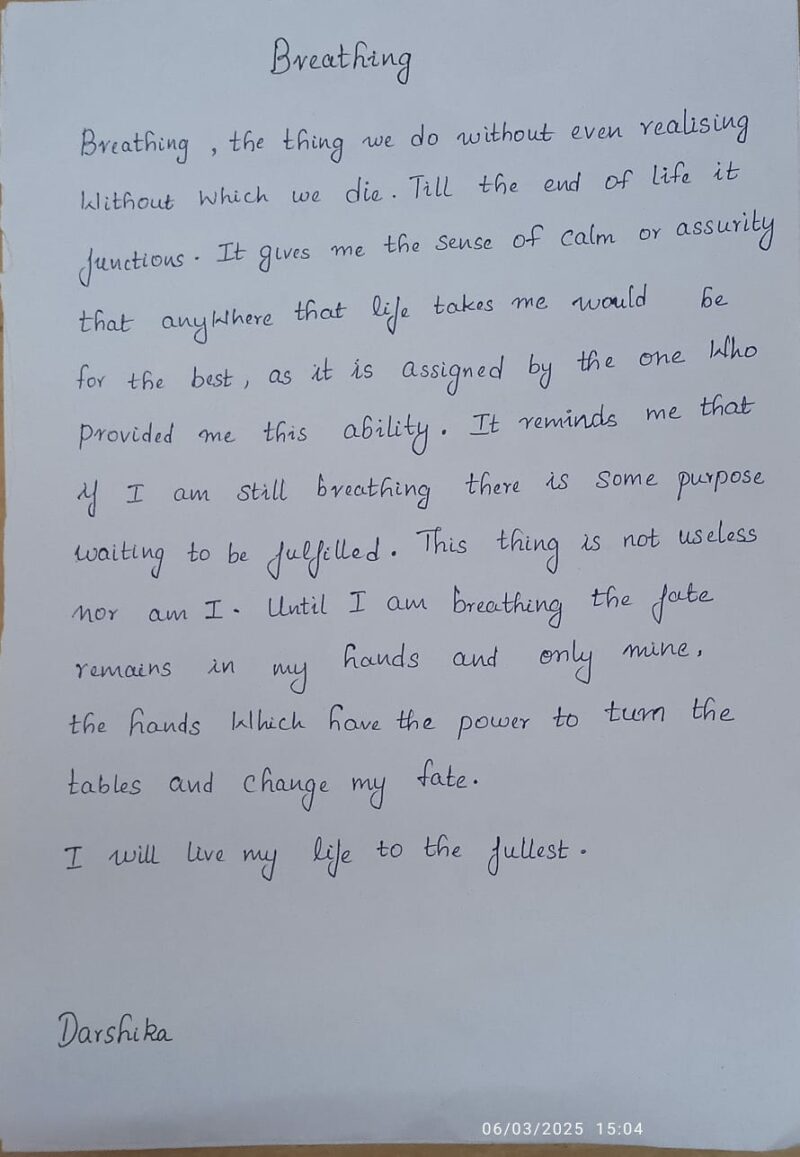 Breathing
Breathing , the thing we do without even realising
Without which we die. Till the end of life it
functions. It gives me the sense of calm or assurity
that anywhere that life takes me would be
for the best, as it is assigned by the one who
provided me this ability. It reminds me that
if I am still breathing there is some purpose
waiting to be fulfilled. This thing is not useless
nor am I. Until I am breathing the fate
remains in my hands and only mine,
the hands which have the power to turn the
tables and change my fate.
I will live my life to the fullest.
Darshika
06/03/2025 15:04